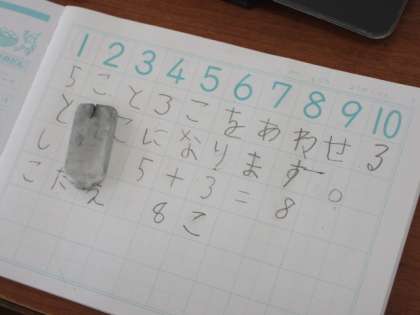 1 2 3 4 5 6 7 8 9 10
5こと3こをあわせる
と こになります。
し 5+3=8
こたえ 8こ